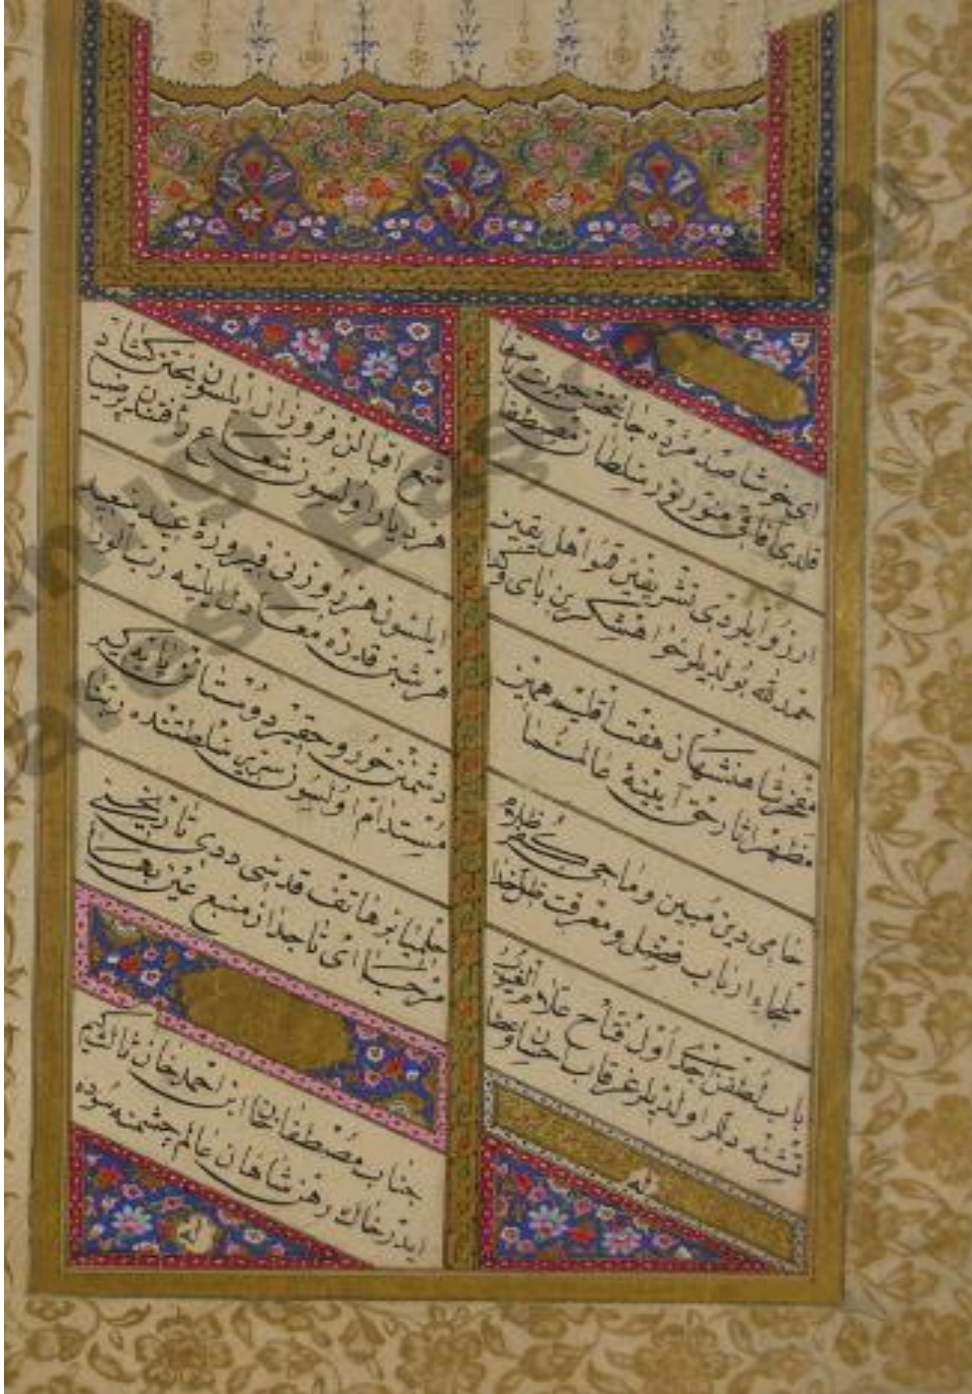 ای خوشا صد مژده جان بخش حیرت با صفا
قلدی آفاقی منور نور سلطان مصطفا
ارزو ایلردی تشریفین قمو اهل یقین
حمد لله بولدیلر خواهشکرین بای و کدا
مفخر شاهنشهان هفت اقلیم همین
مظهر اثار حق آیینهٔ عالمنما
حامی دین مبین و ماحی کفر و ظلام
ملجاء ارباب فضل و معرفت ظل خدا
باب لطفن اجدی اول فتاح علام الغیوب
تشنه دللر اولدیلر غرقاب احسان و عطا
له
شمع اقبالن فروزان ایلسون بختن کشاد
هر دیار اولسون شعاع رأفتندن پر ضیا
ایلسون هر روزنی فیروزهٔ عید سعید
هر شبن قدرده معادل ایلیه رب الورا
دشمنن خور و حقیر دوستانن پایه کیر
مستدام اولسون سریر سلطنتنده ربنا
حلمیا بر هاتف قدسی ددی تاریخنی
مرحبا ای تاجدار منبع عین بها
جناب مصطفا خان ابن احمد خان ثالث کیم
ایدر خاک رهن شاهان عالم چشمنه سوده
له